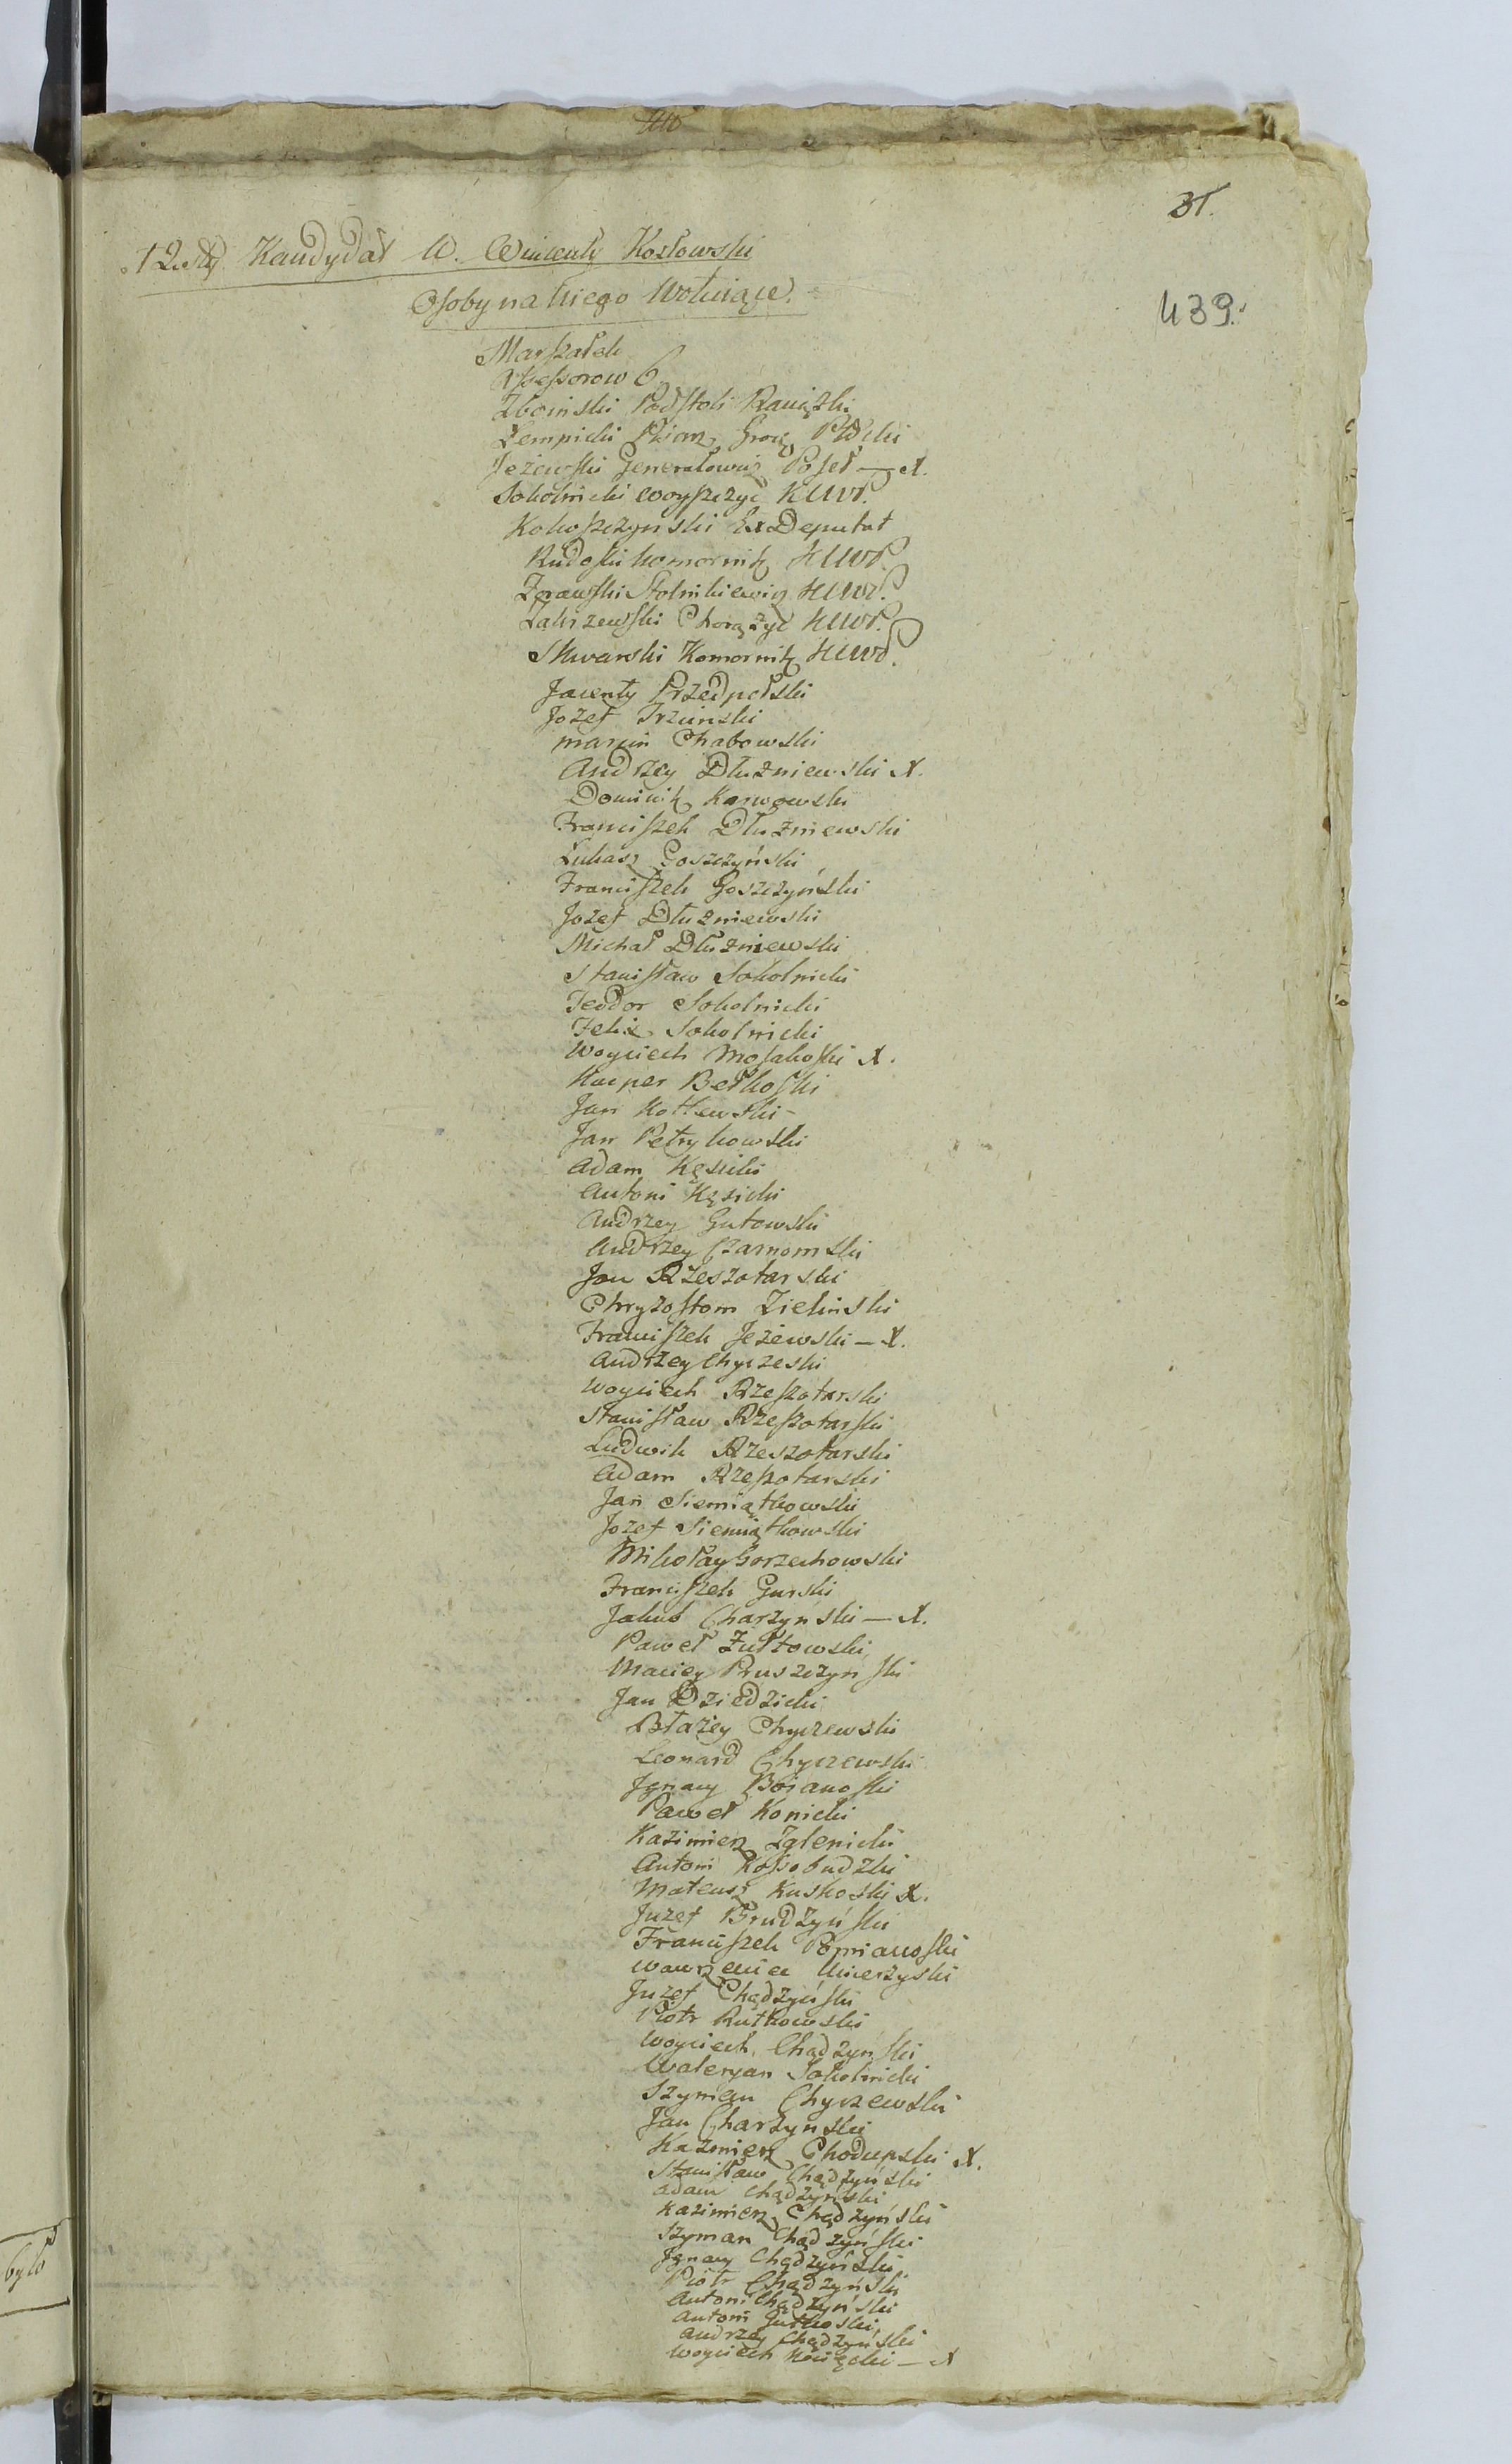 31.
12.sty Kandydat W. Wincenty Kozłowski
439.
Osoby na Niego Wotuiące.
Marszałek
Assessorow 6
Zboinski Podstoli Raciązki
Łempicki Pisarz Grod. Płocki
Jeżewski Generałowicz Poseł — X.
Sokolnicki Woyszczyc
Kokoszczynski Ex Deputat
Rudoski komornik
Żorawski Stolnikiewicz
Zakrzewski Chorążyc
Skwarski Komornik
Jacenty Przedpełski
Jozef Trzcinski
marcin Chabowski
Andrzey Dłużniewski X.
Dominik Karwowski
Franciszek Dłużniewski
Łukasz Goszczyński
Franciszek Goszczyński
Jozef Dłużniewski
Michał Dłużniewski
Stanisław Sokolnicki
Teodor Sokolnicki
Felix Sokolnicki
Woyciech Mosakoski X.
Kacper Bełkoski
Jan Kotlewski -
Jan Petrykowski
Adam Kęsicki
Antoni Kęsicki
Andrzey Gutowski
Andrzey Czarnomski
Jan Rzeszotarski
Chryzostom Zielinski
Franciszek Jeżewski — X.
Andrzey Chyczeski
Woyciech Rzeszotarski
Stanisław Rzeszotarski
Ludwik Rzeszotarski
Adam Rzeszotarski
Jan Siemiątkowski
Jozef Siemiątkowski
Mikołay Gorzechowski
Franciszek Gurski
Jakub Charzyński — X.
Paweł Żułtowski
Maciey Pruszczynski
Jan Dziedzicki
Błażey Chyczewski
Leonard Chyczewski
Jgnacy Boianoski
Paweł Konicki
Kazimierz Zglenicki
Antoni Kossobudzki
Mateusz Kuskoski X.
Juzef Brudzyński
Franciszek Pomianoski
Wawrzeniec Umierzyski
Juzef Chądzyński
Piotr Rutkowski
Woyciech Chądzynski
Waleryan Sokolnicki
Szyman Chyczewski
Jan Charzynski
Kazmierz Chodupski X.
Stanisław Chądzyński
Adam Chądzyński
Kazimierz Chądzyński
Szyman Chądzyński
Jgnacy Chądzyński
Piotr Chądzyński
Antoni Chądzyński
Antoni Jutkoski
Andrzey Chądzyński
Woyciech — X
było